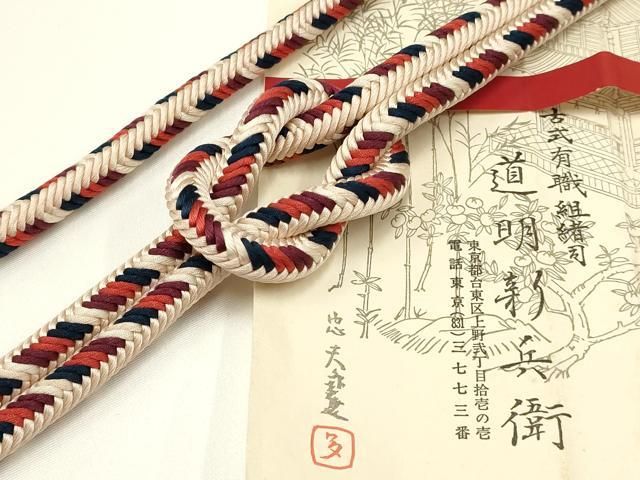 古式有職組緒司
道明新兵衛
東京都台東区上野弐丁目拾壱の壱
電話東京(831)三七七三番